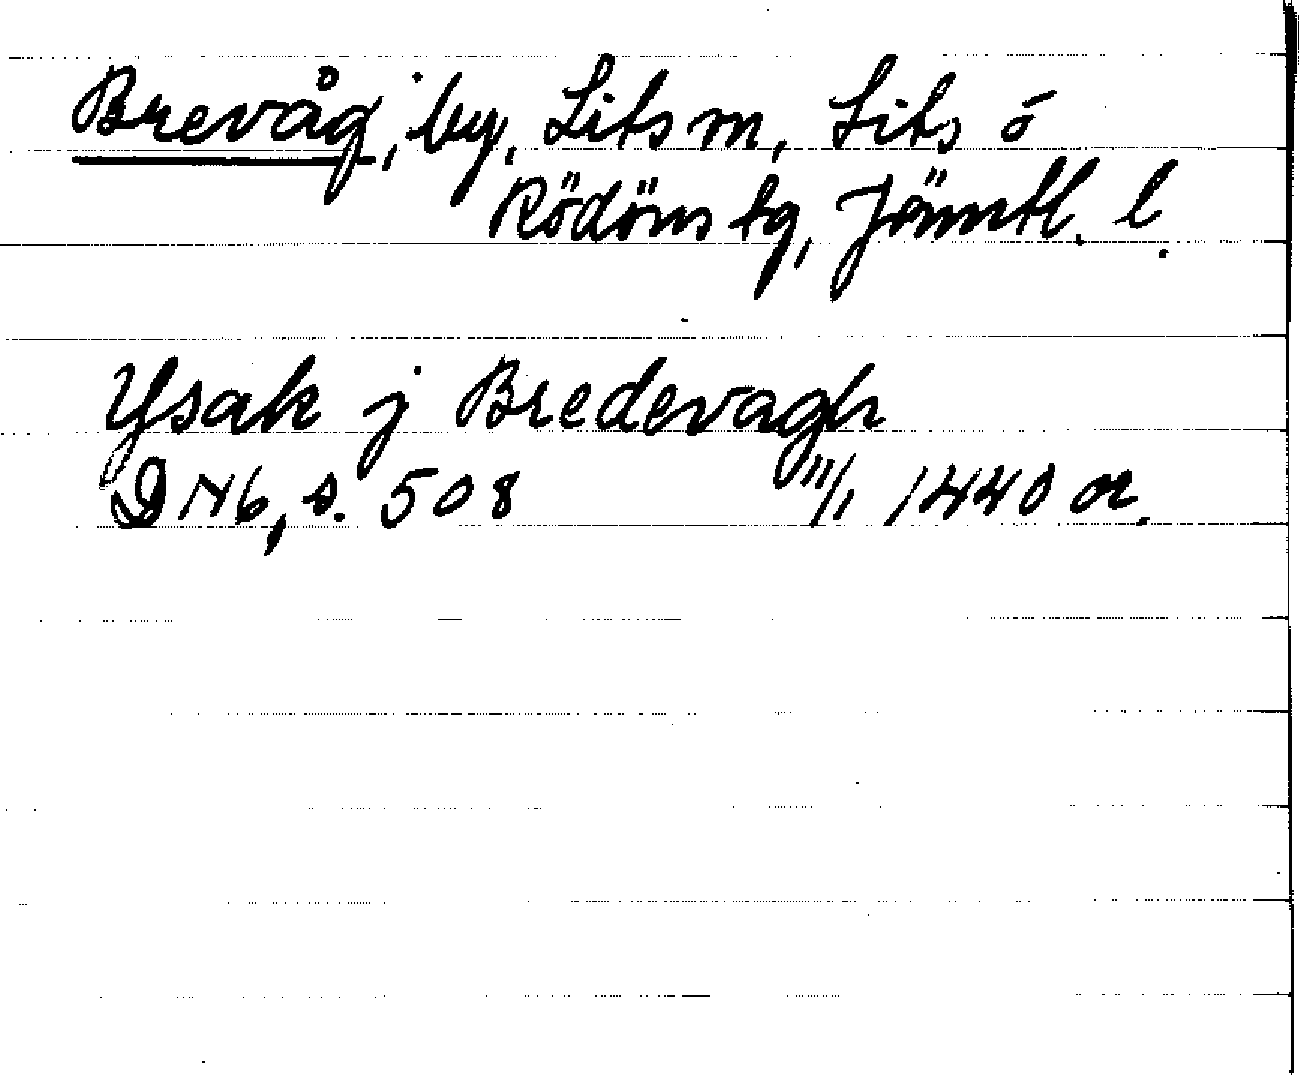 Brevåg, by, Lits m, Lits ó
Rödöns tg, Jämtl. l.
Ysak j Bredevagh
DN 6, s. 508 11/1 1440 or.